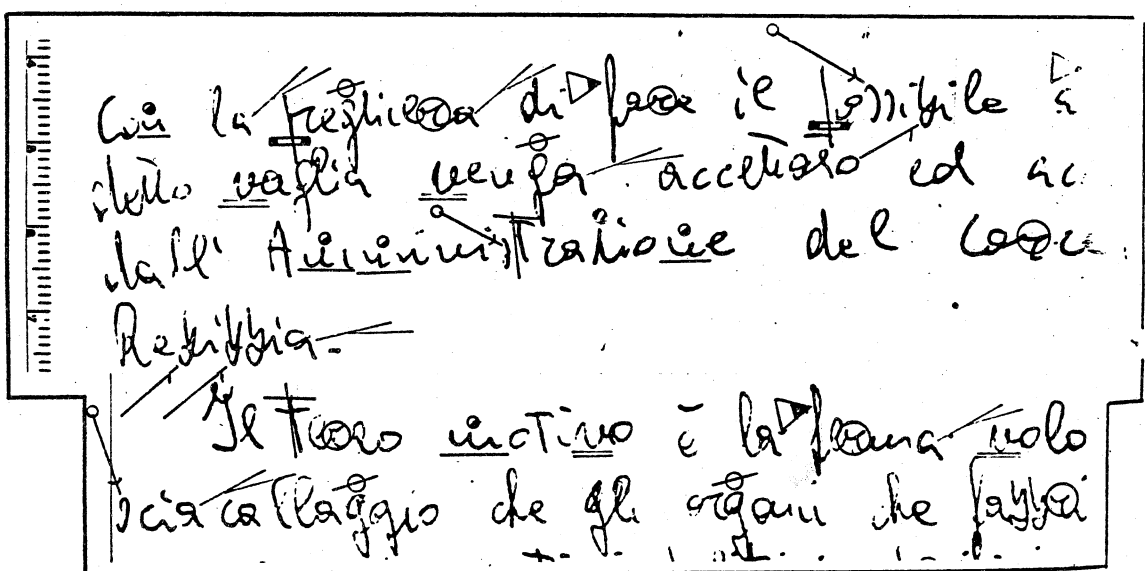 Con la preghiera di fare il possibile a
detto vaglia venga accettato ed ac
dall' Amministrazione del Carce
Rebibbia.
Il vero motivo è la ferma volo
sciacallaggio che gli organi che fabbri